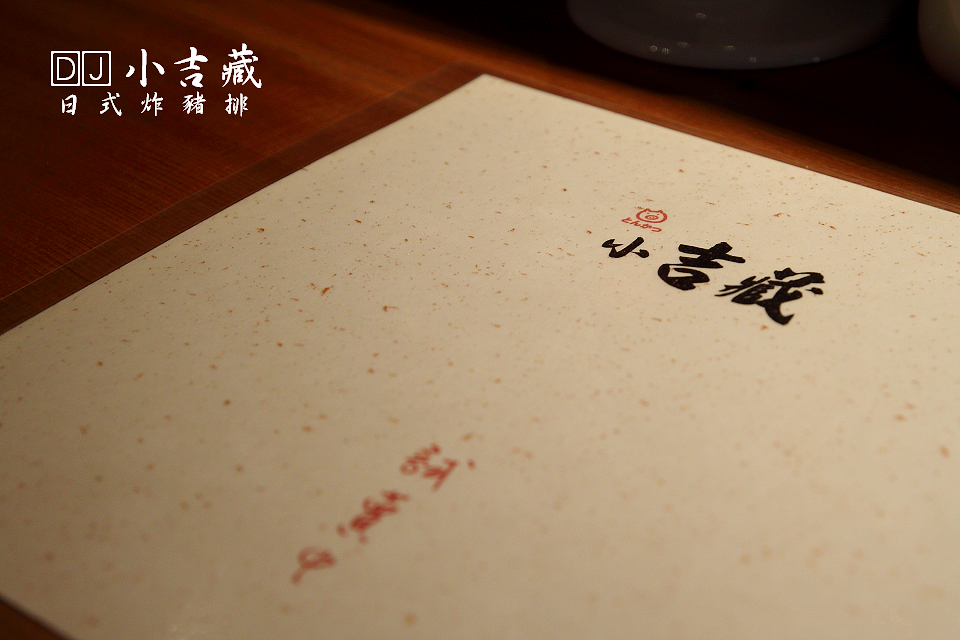 DJ 小吉藏
日式炸豬排
とんかつ
小吉藏